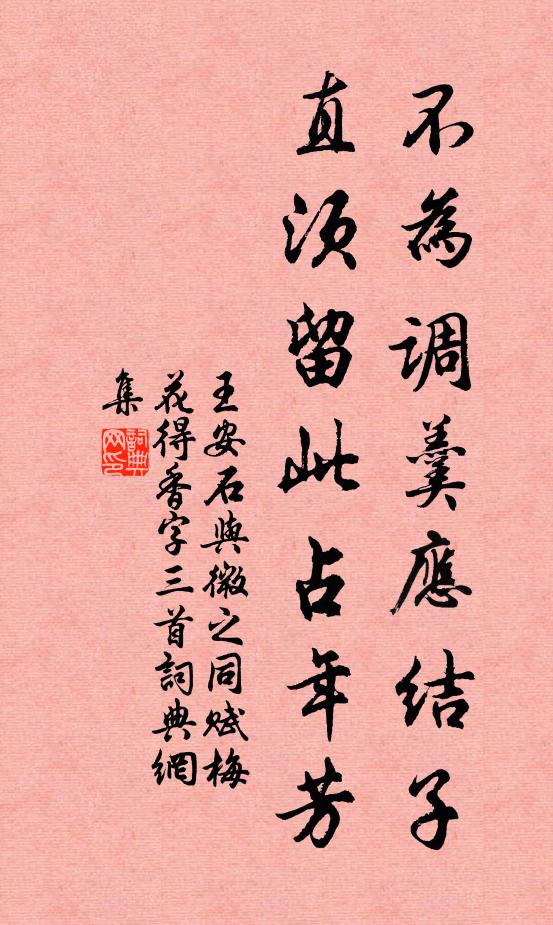 不為調羹應結子
直須留此占年芳
王安石與微之同賦梅
花得香字三首詞典網
集
詞典
网印